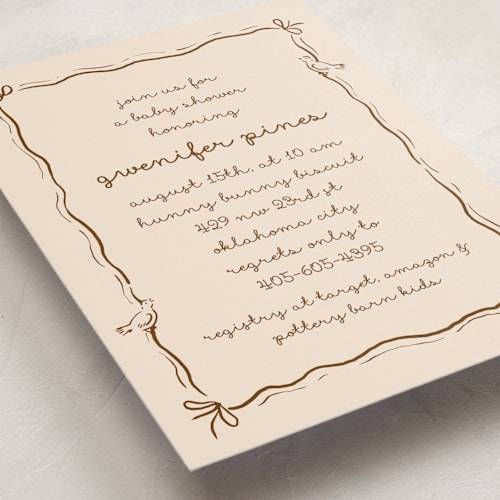 join us for
a baby shower
honoring
gwenifer pines
august 15th, at 10 am
hunny bunny biscuit
429 nw 23rd st
oklahoma city
regrets only to
405-605-4395
registry at target, amazon &
pottery barn kids